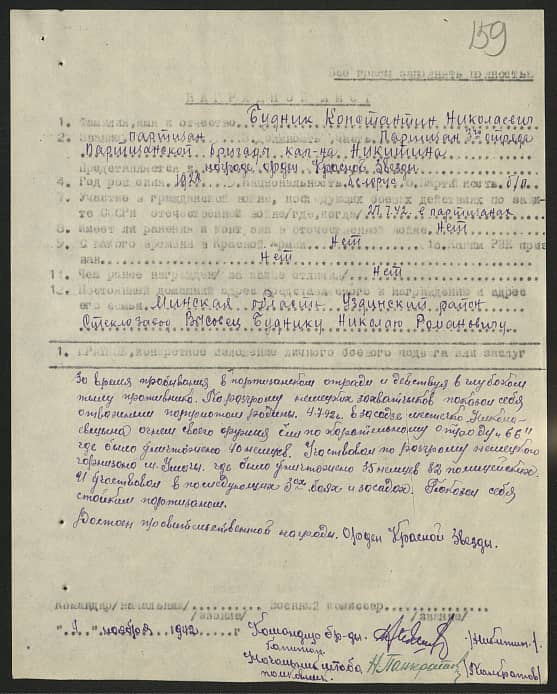 159
Все графы заполнять полностью
НАГРАДНОЙ ЛИСТ
1. Фамилия, имя и отчество Будник Константин Николаевич
2. Звание партизан 3. Должность, часть Партизан 3го отряда
Партизанской бригады кап-на Никитина
Представляется к награде орден Красной Звезды
4. Год рождения 1923 5. Национальность белорус 6. Партийность б/п
7. Участие в гражданской войне, последующих боевых действиях по защи-
те СССР и отечественной войне/где, когда/ в партизанах
8. Имеет ли ранения и контузии в отечественной войне Нет
9. С какого времени в Красной Армии Нет 10. Каким РВК приз
ван Нет
11. Чем ранее награжден/за какие отличия/ Нет
12. Постоянный домашний адрес представляемого к награждению и адрес
его семьи Минская область Узденский район
Стеклозавод Буднику Николаю Романовичу
1. Краткое, конкретное изложение личного боевого подвига или заслуг
За время пребывания в партизанском отряде и действуя в глубоком
тылу противника. По разгрому немецких захватчиков показал себя
отважным патриотом родины. 4.7.42г. в засаде местечко
огнем своего оружия бил по карательному отряду
где было уничтожено 40 немцев. Участвовал по разгрому немецкого
гарнизона м. где было уничтожено 35 немцев 82 полицейских.
участвовал в последующих 3ех боях и засадах. Показал себя
стойким партизаном.
Достоин правительственной награды. Орден Красной Звезды.
Командир/начальник/ Военный комиссар
/звание/ /звание/
ноября 1942 г
Командир бр-ды. /Никитин/
капитан
Начальник штаба /Панкратов/
полковник.